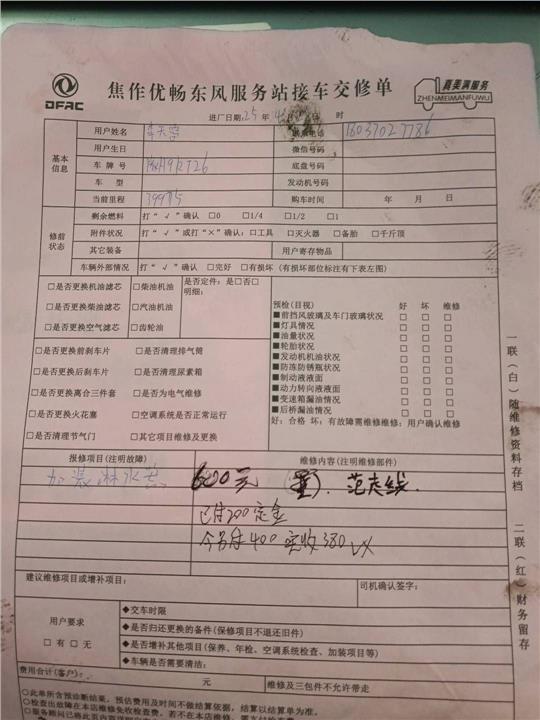 DFAC
焦作优畅东风服务站接车交修单
真美满服务
ZHENMEIMANFUWU
进厂日期:25年 时
基本信息
用户姓名 联系电话 18037027786
用户生日 微信号码
车牌号 底盘号码
车 型 发动机号码
当前里程 购车时间 年 月 日
修前状态
剩余燃料 打“√”确认 □0 □1/4 □1/2 □1
附件状况 打“√”或打“×”确认:□工具 □灭火器 □备胎 □千斤顶
其它装备 用户寄存物品
车辆外部情况 打“√”确认 □完好 □有损坏(有损坏部位标注有下表左图)
□是否更换机油滤芯 □柴油机油 是否定件:是□否□
明细:
□是否更换柴油滤芯 □汽油机油
□是否更换空气滤芯 □齿轮油
□是否更换前刹车片 □是否清理排气筒
□是否更换后刹车片 □是否清理尿素箱
□是否更换离合三件套 □是否为电气维修
□是否更换火花塞 □空调系统是否正常运行
□是否清理节气门 □其它项目维修及更换
预检(目视) 好 坏 维修
■前挡风玻璃及车门玻璃状况 □ □ □
■灯具情况 □ □ □
■油量状况 □ □ □
■轮胎状况 □ □ □
■发动机机油状况 □ □ □
■防冻防锈瓶状况 □ □ □
■制动液液面 □ □ □
■动力转向液液面 □ □ □
■变速箱漏油情况 □ □ □
■后桥漏油情况 □ □ □
好:合格 坏:有故障需维修维修:用户确认维修
报修项目(注明故障) 维修内容(注明维修部件)
加装淋水器 600元 范走线.
已付200定金
今另付400 实收380
建议维修项目或增补项目: 司机确认签字:
用户要求
□有 □无
◆交车时限
◆是否归还更换的备件(保修项目不退还旧件)
◆是否增补其他项目(保养、年检、空调系统检查、加装项目等)
◆车辆是否需要清洁:
费用合计(客户): 元 维修及三包件不允许带走
○此单所含预诊断结果,预估费用及时间不做结算依据,结算以结算单为准。
○检查出故障在本店维修免收检查费,若不在本店维修,
一联(白)随维修资料存档
二联(红)财务留存